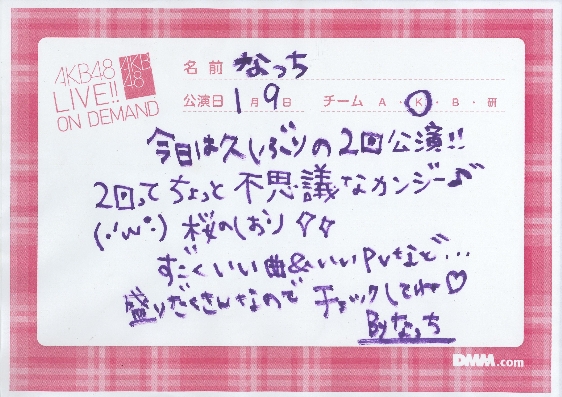 AKB48
LIVE!!
ON DEMAND
AKB
48
名前 なっち
公演日 1月9日 チーム A・K・B・研
今日は久しぶりの2回公演!!
2回ってちょっと不思議なカンジー♪
(・'ω'・) 桜のしおり☆☆
すごくいい曲&いいPVなど…
盛りだくさんなので チェックしてね♡
Byなっち
DMM.com